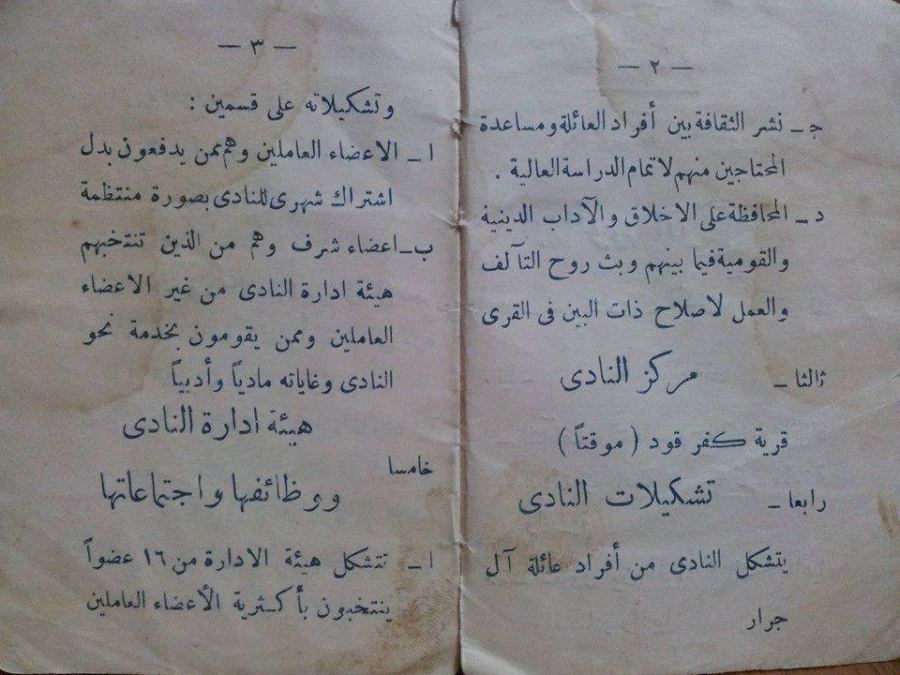 — ٢ —
جـ ـ نشر الثقافة بين أفراد العائلة ومساعدة
المحتاجين منهم لاتمام الدراسة العالية .
د ـ المحافظة على الاخلاق والآداب الدينية
والقومية فيما بينهم وبث روح التآلف
والعمل لاصلاح ذات البين فى القرى
ثالثا ـ مركز النادى
قرية كفر قود ( موقتاً )
رابعا ـ تشكيلات النادى
يتشكل النادى من أفراد عائلة آل
جرار
— ٣ —
وتشكيلاته على قسمين :
ا ـ الاعضاء العاملين وهم ممن يدفعون بدل
اشتراك شهرى للنادى بصورة منتظمة
ب ـ اعضاء شرف وهم من الذين تنتخبهم
هيئة ادارة النادى من غير الاعضاء
العاملين وممن يقومون بخدمة نحو
النادى وغاياته مادياً وأدبياً
هيئة ادارة النادى
خامسا
ووظائفها واجتماعاتها
ا ـ تتشكل هيئة الادارة من ١٦ عضواً
ينتخبون بأكثرية الأعضاء العاملين